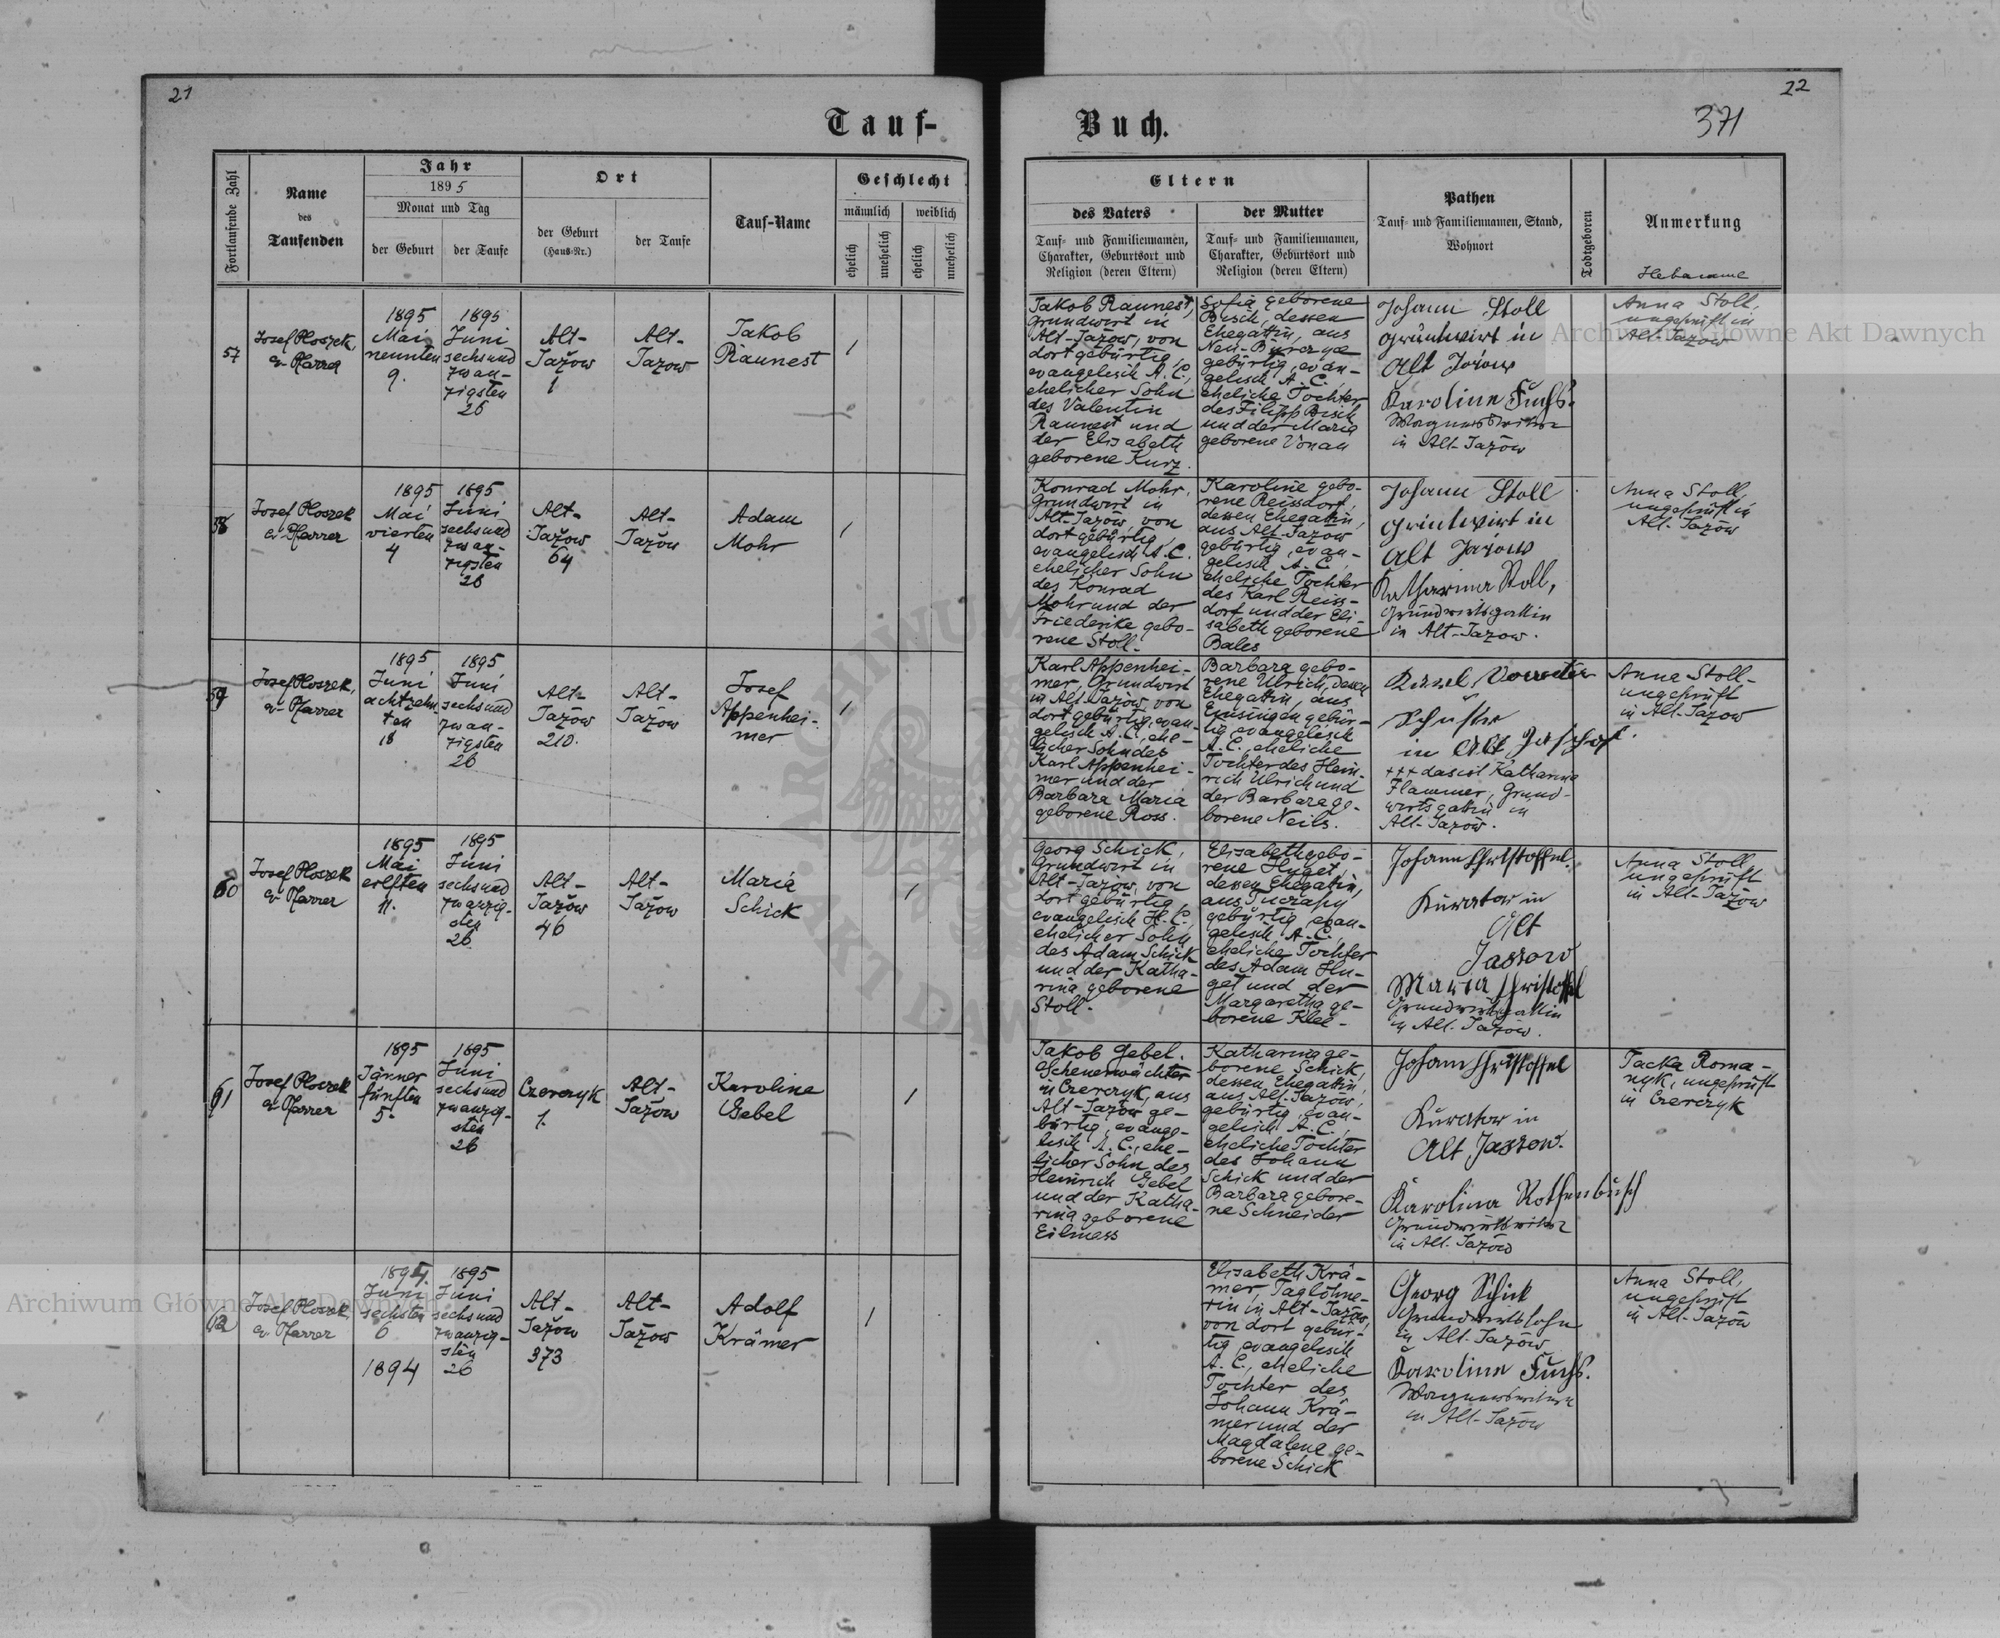 21
22
371
Tauf-
Buch.
Fortlaufende Zahl
Name
des
Taufenden
Jahr
1895
Monat und Tag
der Geburt
der Taufe
Ort
der Geburt
(Haus-Nr.)
der Taufe
Tauf-Name
Geschlecht
männlich
weiblich
ehelich
unehelich
ehelich
unehelich
Eltern
des Vaters
Tauf- und Familiennamen,
Charakter, Geburtsort und
Religion (deren Eltern)
der Mutter
Tauf- und Familiennamen,
Charakter, Geburtsort und
Religion (deren Eltern)
Pathen
Tauf- und Familiennamen, Stand,
Wohnort
Todtgeboren
Anmerkung
Hebamme
57
Josef Ploszek,
ev. Pfarrer
1895
Mai
neunten
9.
1895
Juni
sechsund
zwan-
zigsten
26
Alt-
Jazow
1
Alt-
Jazow
Jakob
Raunest
1
Jakob Raunest,
Grundwirt in
Alt-Jazow, von
dort gebürtig,
evangelisch A. C.,
ehelicher Sohn
des Valentin
Raunest und
der Elisabeth
geborene Kurz.
Sofia geborene
Bisch, dessen
Ehegattin, aus
Neu-
gebürtig, evan-
gelisch A. C.,
eheliche Tochter
des Filipp Bisch
und der Maria
geborene Vonau
Johann Stoll
grundwirt in
Alt Jazow
Karoline Fuchs.
in Alt-Jazow
Anna Stoll,
ungeprüft in
Alt-Jazow
58
Josef Ploszek
ev. Pfarrer
1895
Mai
vierten
4
1895
Juni
sechsund
zwan-
zigsten
26
Alt-
Jazow
64
Alt-
Jazow
Adam
Mohr
1
Konrad Mohr,
Grundwirt in
Alt-Jazow, von
dort gebürtig
evangelisch A. C.
ehelicher Sohn
des Konrad
Mohr und der
Friederike gebo-
rene Stoll.
Karoline gebo-
rene Reissdorf
dessen Ehegattin,
aus Alt-Jazow
gebürtig, evan-
gelisch A. C.,
eheliche Tochter
des Karl Reiss-
dorf und der Eli-
sabeth geborene
Bales
Johann Stoll
grundwirt in
Alt Jazow
Katharina Stoll,
Grundwirtsgattin
in Alt-Jazow.
Anna Stoll,
ungeprüft in
Alt-Jazow
59
Josef Ploszek,
ev. Pfarrer
1895
Juni
achtzehn-
ten
18
1895
Juni
sechsund
zwan-
zigsten
26
Alt-
Jazow
210.
Alt-
Jazow
Josef
Appenhei-
mer
1
Karl Appenhei-
mer, Grundwirt
in Alt-Jazow, von
dort gebürtig, evan-
gelisch A. C., ehe-
licher Sohn des
Karl Appenhei-
mer und der
Barbara Maria
geborene Ross.
Barbara gebo-
rene Ulrich, dessen
Ehegattin, aus
gebür-
tig, evangelisch
A. C., eheliche
Tochter des Hein-
rich Ulrich und
der Barbara ge-
borene Neils.
in Alt
+++ das ist Katharina
Flammer, Grund-
wirtsgattin in
Alt-Jazow.
Anna Stoll-
ungeprüft
in Alt-Jazow
60
Josef Ploszek
ev. Pfarrer
1895
Mai
elften
11.
1895
Juni
sechsund
zwanzig-
sten
26
Alt-
Jazow
46
Alt-
Jazow
Maria
Schick
1
Georg Schick,
Grundwirt in
Alt-Jazow, von
dort gebürtig,
evangelisch H. C.,
ehelicher Sohn
des Adam Schick
und der Katha-
rina geborene
Stoll.
Elisabeth gebo-
rene Huget
dessen Ehegattin,
aus
gebürtig, evan-
gelisch A. C.
eheliche Tochter
des Adam Hu-
get und der
Margaretha ge-
borene Klee-
Johann Christoffel
Kurator in
Alt
Jassow
Maria Christoffel
Grundwirtsgattin
in Alt-Jazow.
Anna Stoll,
ungeprüft
in Alt-Jazow
61
Josef Ploszek
ev. Pfarrer
1895
Jänner
fünften
5.
1895
Juni
sechsund
zwanzig-
sten
26
Czerczyk
1.
Alt-
Jazow
Karoline
Gebel
1
Jakob Gebel.
in Czerczyk, aus
Alt-Jazow ge-
bürtig, evange-
lisch A. C., ehe-
licher Sohn des
Heinrich Gebel
und der Katha-
rina geborene
Eilmess
Katharina ge-
borene Schick,
dessen Ehegattin,
aus Alt-Jazow,
gebürtig, evan-
gelisch A. C.,
eheliche Tochter
des Johann
Schick und der
Barbara gebore-
ne Schneider
Johann Christoffel
Kurator in
Alt Jassow.
Karolina Rothenbusch
in Alt-Jazow
Tacka Roma-
nyk, ungeprüft
in Czerczyk
62
Josef Ploszek
ev. Pfarrer
1894.
Juni
sechsten
6
1894
1895
Juni
sechsund
zwanzig-
sten
26
Alt-
Jazow
373
Alt-
Jazow
Adolf
Krämer
1
Elisabeth Krä-
mer, Taglöhne-
rin in Alt-Jazow,
von dort gebür-
tig, evangelisch
A. C., eheliche
Tochter des
Johann Krä-
mer und der
Magdalena ge-
borene Schick
Georg Schick
Grundwirtssohn
in Alt-Jazow
Karoline Fuchs.
in Alt-Jazow
Anna Stoll,
ungeprüft
in Alt-Jazow
Archiwum Główne Akt Dawnych
Archiwum Główne Akt Dawnych
ARCHIWUM
AKT DAWNYCH